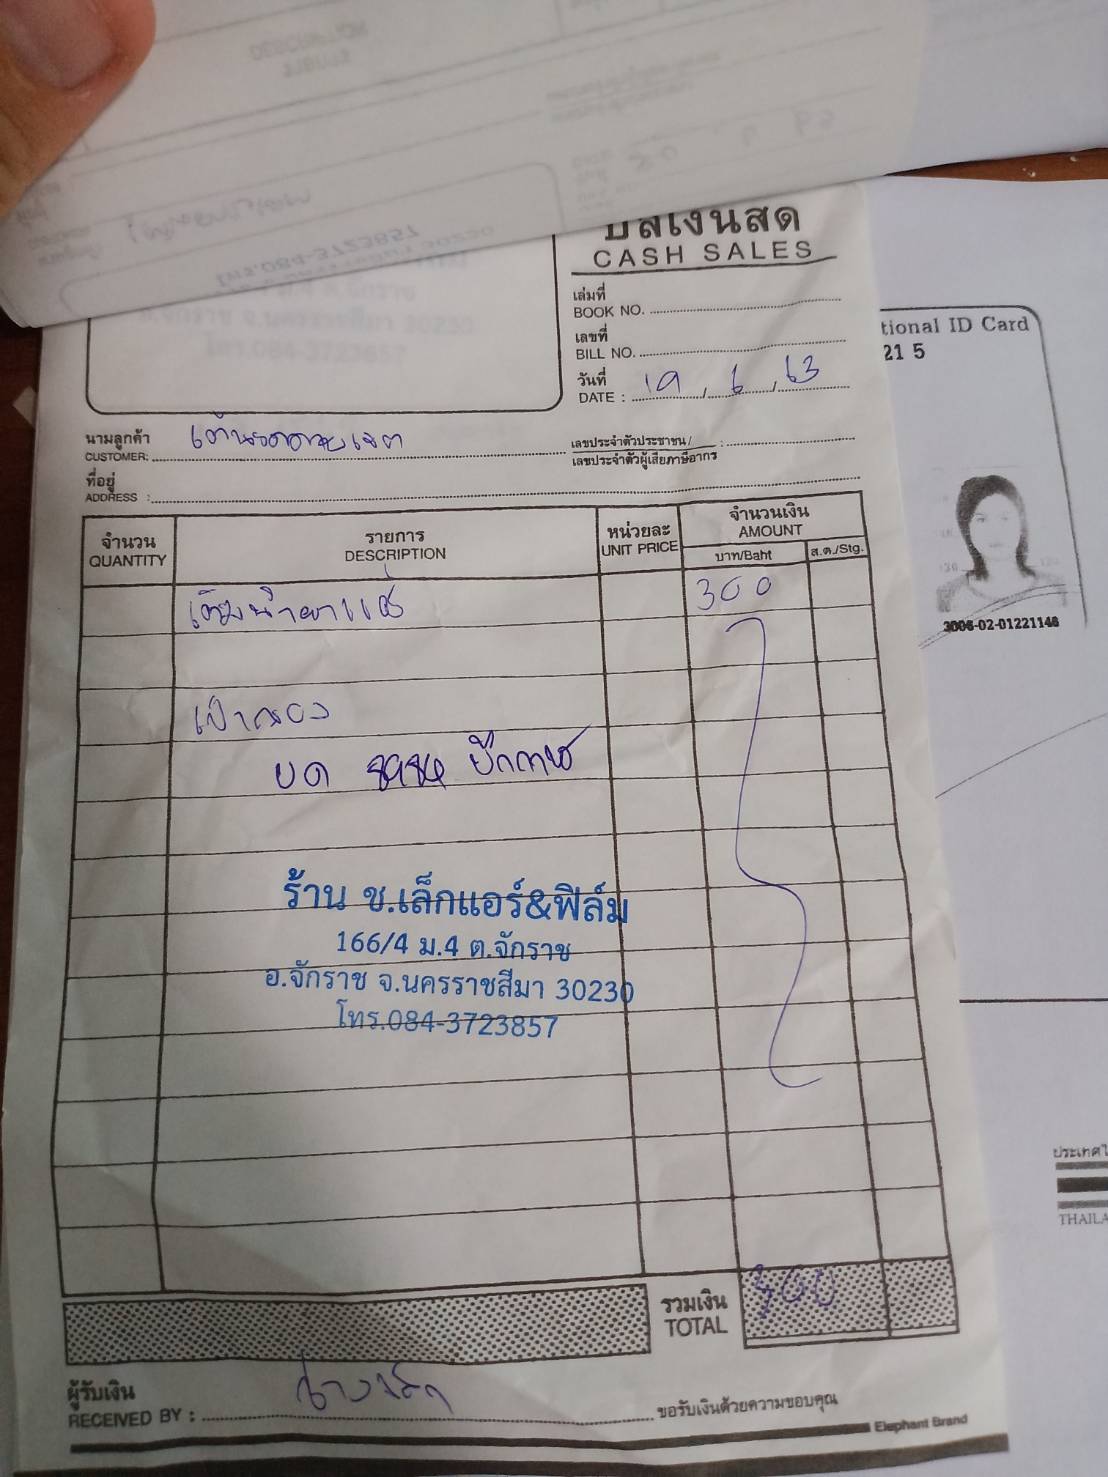 บิลเงินสด
CASH SALES
เล่มที่
BOOK NO.
เลขที่
BILL NO.
วันที่
DATE : 19 / 6 / 63
นามลูกค้า
CUSTOMER:
เลขประจำตัวประชาชน/ :
เลขประจำตัวผู้เสียภาษีอากร
ที่อยู่
ADDRESS :
จำนวน รายการ หน่วยละ จำนวนเงิน
QUANTITY DESCRIPTION UNIT PRICE AMOUNT
บาท/Baht ส.ต./Stg.
เติมน้ำยาแอร์ 300
เป่ากรอง
ร้าน ช.เล็กแอร์&ฟิล์ม
166/4 ม.4 ต.จักราช
อ.จักราช จ.นครราชสีมา 30230
โทร.084-3723857
รวมเงิน 300
TOTAL
ผู้รับเงิน
RECEIVED BY : ช่างเล็ก ขอรับเงินด้วยความขอบคุณ
Elephant Brand
tional ID Card
21 5
3006-02-01221146
ประเทศไ
THAILA